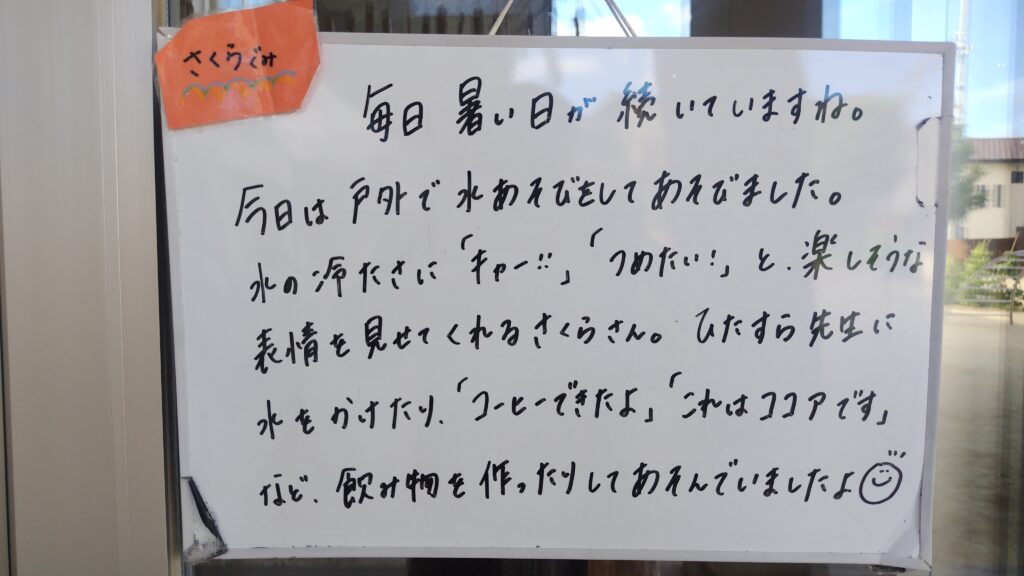 さくらぐみ
毎日 暑い日が 続いていますね。
今日は 戸外で 水あそびをして あそびました。
水の 冷たさに「キャー!!」「つめたい!」と、楽しそうな
表情を 見せてくれる さくらさん。 ひたすら 先生に
水を かけたり、「コーヒーできたよ」「これはココアです」
など、飲み物を 作ったりして あそんでいましたよ